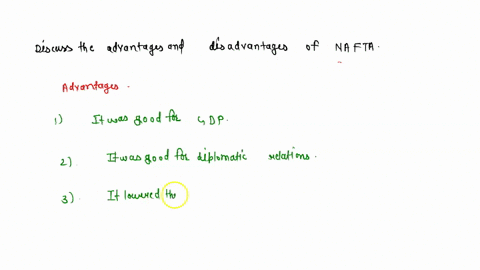 Discuss the advantages and disadvantages of NAFTA.
Advantages.
1) It was good for GDP.
2) It was good for diplomatic relations.
3) It lowered the